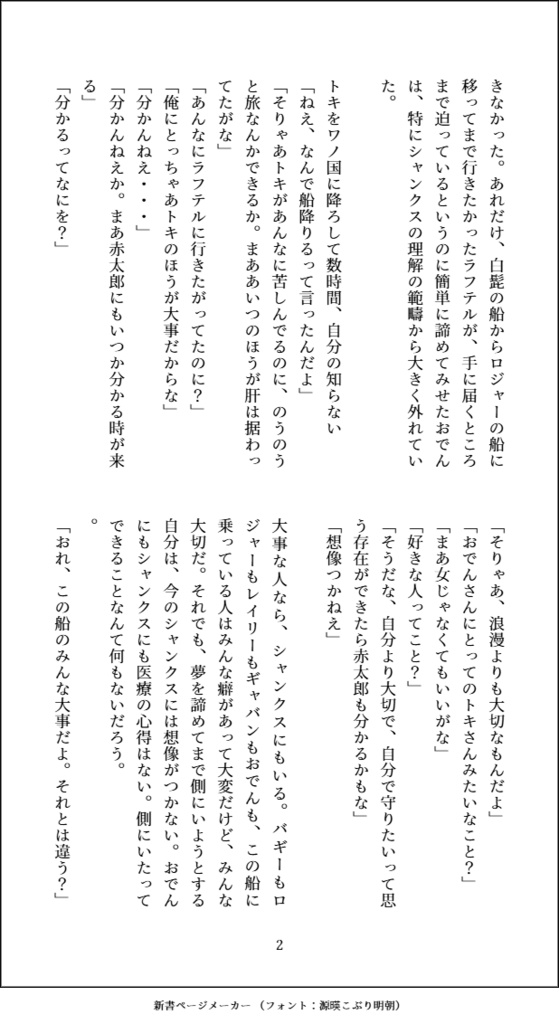 きなかった。あれだけ、白髭の船からロジャーの船に
移ってまで行きたかったラフテルが、手に届くところ
まで迫っているというのに簡単に諦めてみせたおでん
は、特にシャンクスの理解の範疇から大きく外れてい
た。
トキをワノ国に降ろして数時間、自分の知らない
「ねえ、なんで船降りるって言ったんだよ」
「そりゃあトキがあんなに苦しんでるのに、のうのう
と旅なんかできるか。まああいつのほうが肝は据わっ
てたがな」
「あんなにラフテルに行きたがってたのに？」
「俺にとっちゃあトキのほうが大事だからな」
「分かんねえ・・・」
「分かんねえか。まあ赤太郎にもいつか分かる時が来
る」
「分かるってなにを？」
「そりゃあ、浪漫よりも大切なもんだよ」
「おでんさんにとってのトキさんみたいなこと？」
「まあ女じゃなくてもいいがな」
「好きな人ってこと？」
「そうだな、自分より大切で、自分で守りたいって思
う存在ができたら赤太郎も分かるかもな」
「想像つかねえ」
大事な人なら、シャンクスにもいる。バギーもロ
ジャーもレイリーもギャバンもおでんも、この船に
乗っている人はみんな癖があって大変だけど、みんな
大切だ。それでも、夢を諦めてまで側にいようとする
自分は、今のシャンクスには想像がつかない。おでん
にもシャンクスにも医療の心得はない。側にいたって
できることなんて何もないだろう。
。
「おれ、この船のみんな大事だよ。それとは違う？」
2
新書ページメーカー （フォント：源暎こぶり明朝）